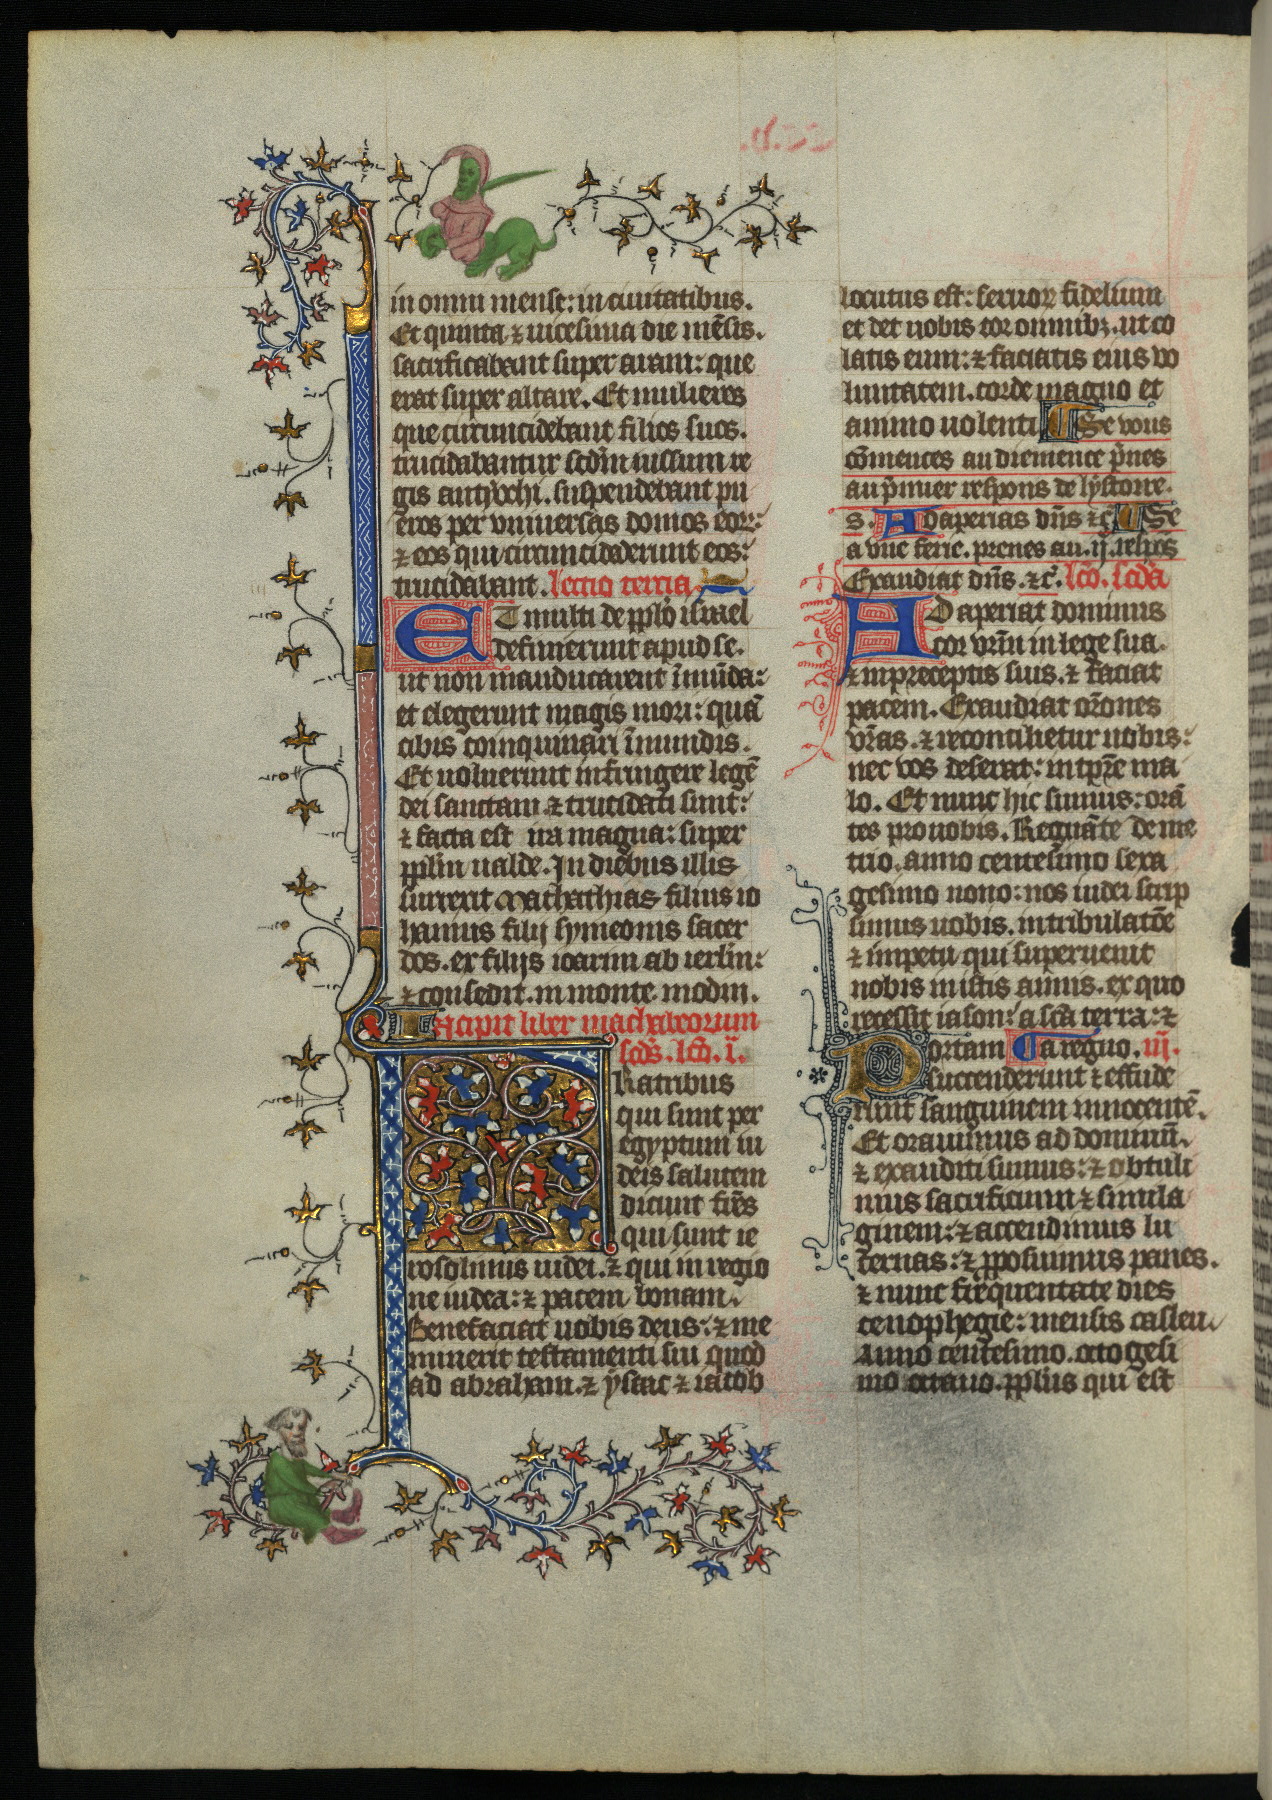 in omni mense: in ciuitatibus.
Et quinta ⁊ uicesima die mẽsis.
sacrificabant super aram: que
erat super altare. Et mulieres
que circumcidebant filios suos.
trucidabantur scdm̃ iussum re
gis anthiochi. suspendebant pu
eros per vniuersas domos eorꝝ:
⁊ eos qui circumcidederunt eos:
trucidabant. lectio tercia.
ET multi de pplo israel
definierunt apud se.
ut non manducarent ĩmũda:
et elegerunt magis mori: quã
cibis coinquinari ĩmundis.
Et noluerunt infringere legẽ
dei sanctam ⁊ trucidati sunt:
⁊ facta est ira magna: super
pplm̃ ualde. In diebus illis
surrexit Mathathias filius io
hannis filij symeonis sacer
dos. ex filijs ioarim ab ierlm̃:
⁊ consedit. in monte modin.
Incipit liber machabeorum
scds̃. lcõ. ĩ.
Fratribus
qui sunt per
egyptum iu
deis salutem
dicunt frẽs
qui sunt ie
rosolimis iudei. ⁊ qui in regio
ne iudea: ⁊ pacem bonam.
Benefaciat uobis deus: ⁊ me
minerit testamenti sui quod
ad abraham. ⁊ ysaac ⁊ iacob
locutus est: seruorꝝ fidelium
et det uobis cor omnibꝫ. ut co
latis eum: ⁊ faciatis eius uo
luntatem. corde magno et
animo uolenti. Se vous
cõmences au diemence p̃nes
au p̃mier respons de lystoire.
s. Adaperias dñs ⁊c̃. Se
a vne ferie. prenes au .ij. respõs
Exaudiat dñs. ⁊c̃. lcõ. scdã
ADaperiat dominus
cor vr̃m in lege sua.
⁊ in preceptis suis. ⁊ faciat
pacem. Exaudiat or̃ones
vr̃as. ⁊ reconcilietur uobis:
nec vos deserat: in tp̃re ma
lo. Et nunc hic sumus: orã
tes pro uobis. Regnãte deme
trio. anno centesimo sexa
gesimo nono: nos iudei scrip
simus uobis. in tribulatõe
⁊ impetu qui superuenit
nobis in istis annis. ex quo
recessit iason: a scã terra: ⁊
Portam Ca regno. iij.
succenderunt ⁊ effude
runt sanguinem innocentẽ.
Et orauimus ad dominũ.
⁊ exauditi sumus: ⁊ obtuli
mus sacrificium ⁊ simila
ginem: ⁊ accendimus lu
cernas: ⁊ pposuimus panes.
⁊ nunc frequentate dies
cenophegie: mensis casleu.
Anno centesimo. octogesi
mo octauo. pplus qui est